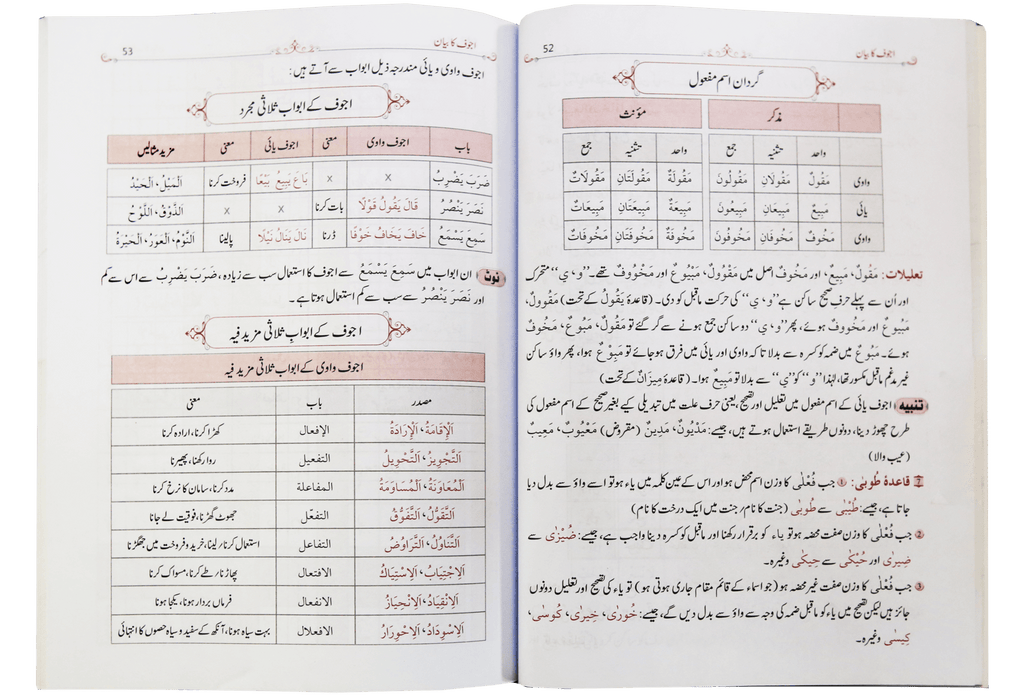 52
اجوف کا بیان
گردان اسم مفعول
مذکر مؤنث
واحد تثنیہ جمع واحد تثنیہ جمع
واوی مَقُولٌ مَقُولَانِ مَقُولُونَ مَقُولَةٌ مَقُولَتَانِ مَقُولَاتٌ
یائی مَبِيعٌ مَبِيعَانِ مَبِيعُونَ مَبِيعَةٌ مَبِيعَتَانِ مَبِيعَاتٌ
واوی مَخُوفٌ مَخُوفَانِ مَخُوفُونَ مَخُوفَةٌ مَخُوفَتَانِ مَخُوفَاتٌ
تعلیلات: مَقُولٌ، مَبِيعٌ، اور مَخُوفٌ اصل میں مَقْوُولٌ، مَبْيُوعٌ اور مَخْوُوفٌ تھے۔ ”و، ی“ متحرک
اور اُن سے پہلے حرف صحیح ساکن ہے ”و، ی“ کی حرکت ماقبل کو دی۔ (قاعدہ يَقُولُ کے تحت) مَقُوولٌ،
مَبُيوعٌ اور مَخُووفٌ ہوئے، پھر ”و، ی“ دو ساکن جمع ہونے سے گر گئے تو مَقُولٌ، مَبُوعٌ، مَخُوفٌ
ہوئے۔ مَبُوعٌ میں ضمہ کو کسرہ سے بدلا تاکہ واوی اور یائی میں فرق ہوجائے تو مَبِوْعٌ ہوا، پھر واؤ ساکن
غیر مدغم ماقبل مکسور تھا، لہٰذا ”و“ کو ”ی“ سے بدلا تو مَبِيعٌ ہوا۔ (قاعدہ مِيزَانٌ کے تحت)
تنبیہ اجوف یائی کے اسم مفعول میں تعلیل اور تصحیح، یعنی حرف علت میں تبدیلی کیے بغیر صحیح کے اسم مفعول کی
طرح چھوڑ دینا، دونوں طریقے استعمال ہوتے ہیں، جیسے: مَدْيُونٌ، مَدِينٌ (مقروض) مَعْيُوبٌ، مَعِيبٌ
(عیب والا)
قاعدۂ طُوبٰی: ① جب فُعْلٰی کا وزن اسم محض ہو اور اس کے عین کلمہ میں یاء ہو تو اسے واؤ سے بدل دیا
جاتا ہے، جیسے: طُيْبٰی سے طُوبٰی (جنت کا نام / جنت میں ایک درخت کا نام)
② جب فُعْلٰی کا وزن صفت محضہ ہو تو یاء کو برقرار رکھنا اور ماقبل کو کسرہ دینا واجب ہے، جیسے: ضُيْزٰی سے
ضِيزٰی اور حُيْكٰی سے حِيكٰی وغیرہ۔
③ جب فُعْلٰی کا وزن صفت غیر محضہ ہو (جو اسماء کے قائم مقام جاری ہوتی ہو) تو یاء کی تصحیح اور تعلیل دونوں
جائز ہیں لیکن تصحیح میں یاء کو ماقبل ضمہ کی وجہ سے واؤ سے بدل دیں گے، جیسے: خُورٰی، خِيرٰی، كُوسٰی،
كِيسٰی وغیرہ۔
53
اجوف کا بیان
اجوف واوی و یائی مندرجہ ذیل ابواب سے آتے ہیں:
اجوف کے ابواب ثلاثی مجرد
باب اجوف واوی معنی اجوف یائی معنی مزید مثالیں
ضَرَبَ يَضْرِبُ x x بَاعَ يَبِيعُ بَيْعًا فروخت کرنا اَلْمَيْلُ، اَلْحَيْدُ
نَصَرَ يَنْصُرُ قَالَ يَقُولُ قَوْلًا بات کرنا x x اَلذَّوْقُ، اَللَّوْحُ
سَمِعَ يَسْمَعُ خَافَ يَخَافُ خَوْفًا ڈرنا نَالَ يَنَالُ نَيْلًا پالینا اَلنَّوْمُ، اَلْعَوَرُ، اَلْحَيْرَةُ
نوٹ ان ابواب میں سَمِعَ يَسْمَعُ سے اجوف کا استعمال سب سے زیادہ، ضَرَبَ يَضْرِبُ سے اس سے کم
اور نَصَرَ يَنْصُرُ سے سب سے کم استعمال ہوتا ہے۔
اجوف کے ابوابِ ثلاثی مزید فیہ
اجوف واوی کے ابواب ثلاثی مزید فیہ
مصدر باب معنی
اَلْإِقَامَةُ، اَلْإِرَادَةُ الإفعال کھڑا کرنا، ارادہ کرنا
اَلتَّجْوِيزُ، اَلتَّحْوِيلُ التفعيل روا رکھنا، پھیرنا
اَلْمُعَاوَنَةُ، اَلْمُسَاوَمَةُ المفاعلة مدد کرنا، سامان کا نرخ کرنا
اَلتَّقَوُّلُ، اَلتَّفَوُّقُ التفعّل جھوٹ گھڑنا، فوقیت لے جانا
اَلتَّنَاوُلُ، اَلتَّرَاوُضُ التفاعل استعمال کرنا / لینا، خرید و فروخت میں جھگڑنا
اَلِاجْتِيَابُ، اَلِاسْتِيَاكُ الافتعال پھاڑنا / طے کرنا، مسواک کرنا
اَلِانْقِيَادُ، اَلِانْحِيَازُ الانفعال فرماں بردار ہونا، یکجا ہونا
اَلِاسْوِدَادُ، اَلِاحْوِرَارُ الافعلال بہت سیاہ ہونا، آنکھ کے سفید و سیاہ حصوں کا انتہائی